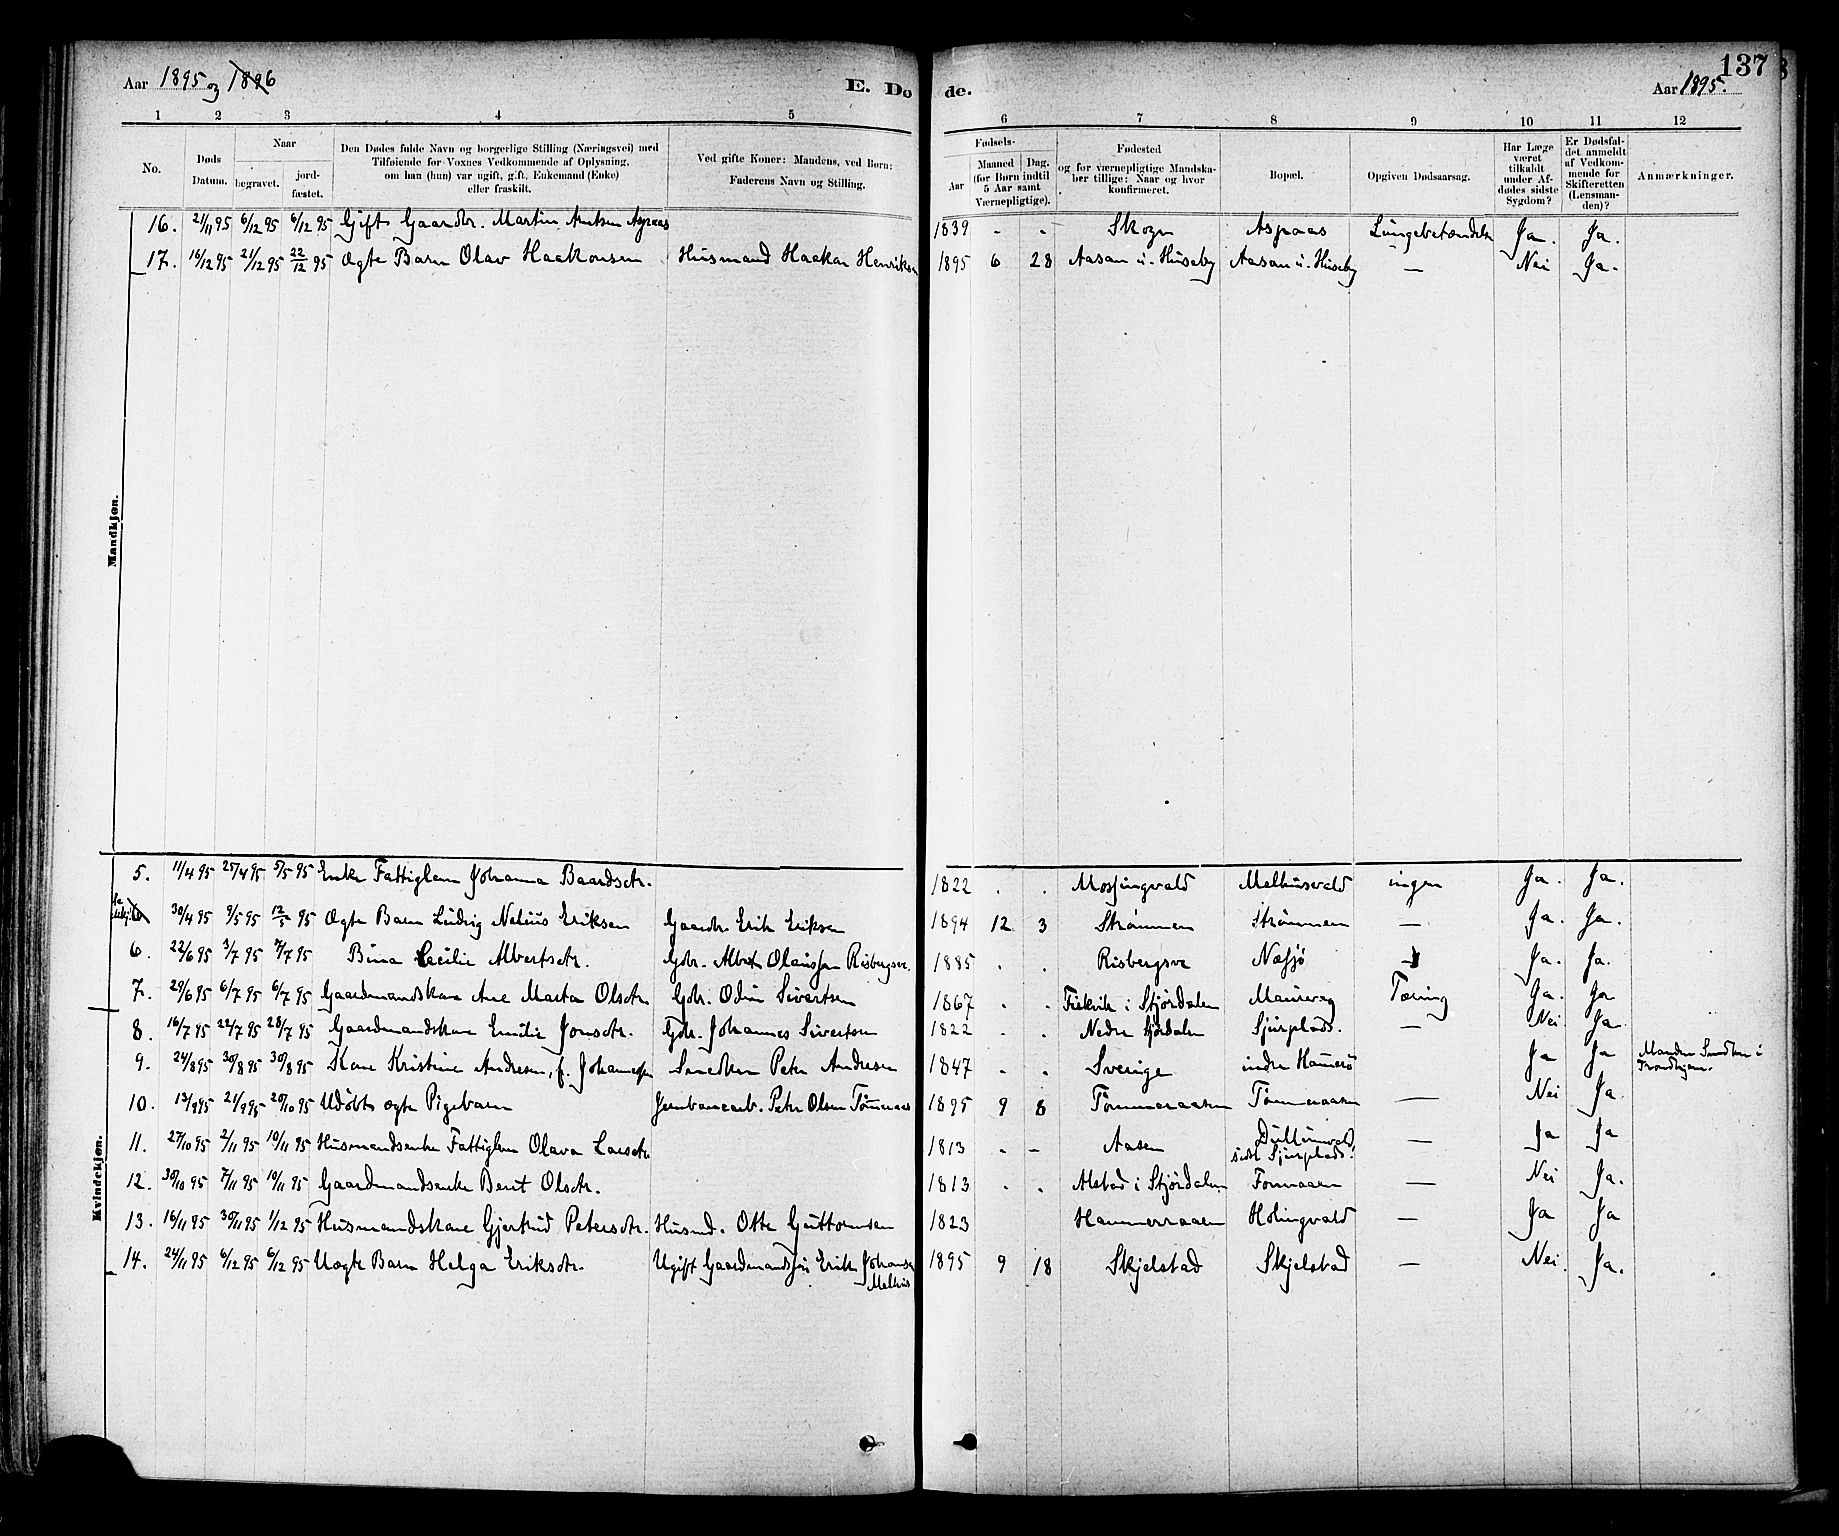 Aar 1895 og 1896
E. Dø
de.
137
Aar 1895.
1 2 3 4 5
6 7 8 9 10 11 12
No.
Døds Datum.
Naar
begravet.
jord-fæstet.
Den Dødes fulde Navn og borgerlige Stilling (Næringsvei) med
Tilføiende for Voxnes Vedkommende af Oplysning,
om han (hun) var ugift, gift, Enkemand (Enke)
eller fraskilt.
Ved gifte Koner: Mandens, ved Børn:
Faderens Navn og Stilling.
Fødsels-
Aar
Maaned (for Børn indtil 5 Aar samt Værnepligtige).
Dag.
Fødested
og for værnepligtige Mandska-
ber tillige: Naar og hvor
konfirmeret.
Bopæl.
Opgiven Dødsaarsag.
Har Læge været tilkaldt under Afdødes sidste Sygdom?
Er Dødsfaldet anmeldt af Vedkommende for Skifteretten (Lensmanden)?
Anmærkninger.
Mandkjøn.
16. 21/11 95 6/12 95 6/12 95 Gift Gaardbr. Martin Arntsen Aspaas 1839 - - Skogn Aspaas Lungebetændelse Ja. Ja.
17. 16/12 95 21/12 95 22/12 95 Ægte Barn Olav Haakonsen Husmand Haakon Henriksen 1895 6 28 Aasan u. Huseby Aasan u. Huseby — Nei Ja.
Kvindekjøn.
5. 11/4 95 25/4 95 5/5 95 Enke Fattiglem Johanna Baardsdtr. 1822 . . Mossingvald Melhusvald ingen Ja. Ja.
30/4 95 9/5 95 12/5 95 Ægte Barn Ludvig Nelius Eriksen Gaardbr. Erik Eriksen 1894 12 3 Strømmen Strømmen — Ja. Ja.
6. 22/6 95 3/7 95 7/7 95 Bina Cecilie Albertsdtr. Gbr. Albert Olaussen Risbergsve. 1885 . . Risbergsve Næssjø Ja. Ja.
7. 29/6 95 6/7 95 6/7 95 Gaardmandskone Ane Marta Olsdtr. Gbr. Odin Sivertsen 1867 . . i Stjørdalen Tæring Ja. Ja
8. 16/7 95 22/7 95 28/7 95 Gaardmandskone Emilie Jonsdtr. Gbr. Johannes Sivertsen 1822 . . Nedre Stjørdalen Sjurplads. — Nei Ja.
9. 24/8 95 30/8 95 30/8 95 Kone Kristine Andresen, f. Johannessen Snedker Peter Andresen 1847 . . Sverige indre Hammerø Ja Ja Manden Snedker i
Trondhjem.
10. 13/9 95 21/9 95 20/10 95 Udøbt ægte Pigebarn Jernbanearb. Peter Olsen Tømmeraas 1895 9 8 Tømmeraasen Tømmeraasen — Nei Ja.
11. 27/10 95 2/11 95 10/11 95 Husmandsenke Fattiglem Olava Larsdtr. 1813 . - Aasen Dullumvald
sidst Sjurplads. — Ja Ja
12. 30/10 95 7/11 95 10/11 95 Gaardmandsenke Berit Olsdtr. 1813 . . Alstad i Stjørdalen Fornaasen — Nei Ja.
13. 16/11 95 30/11 95 1/12 95 Husmandskone Gjertrud Petersdtr. Husmd. Otte Guttormsen 1823 Hammeraasen Holingvald — Ja Ja
14. 24/11 95 6/12 95 6/12 95 Uægte Barn Helga Eriksdtr. Ugift Gaardmandssøn Erik Johansen
Melhus 1895 9 18 Skjelstad Skjelstad — Nei. Ja.